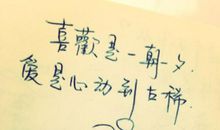 喜歡是一朝一夕.
愛是心动到古稀.